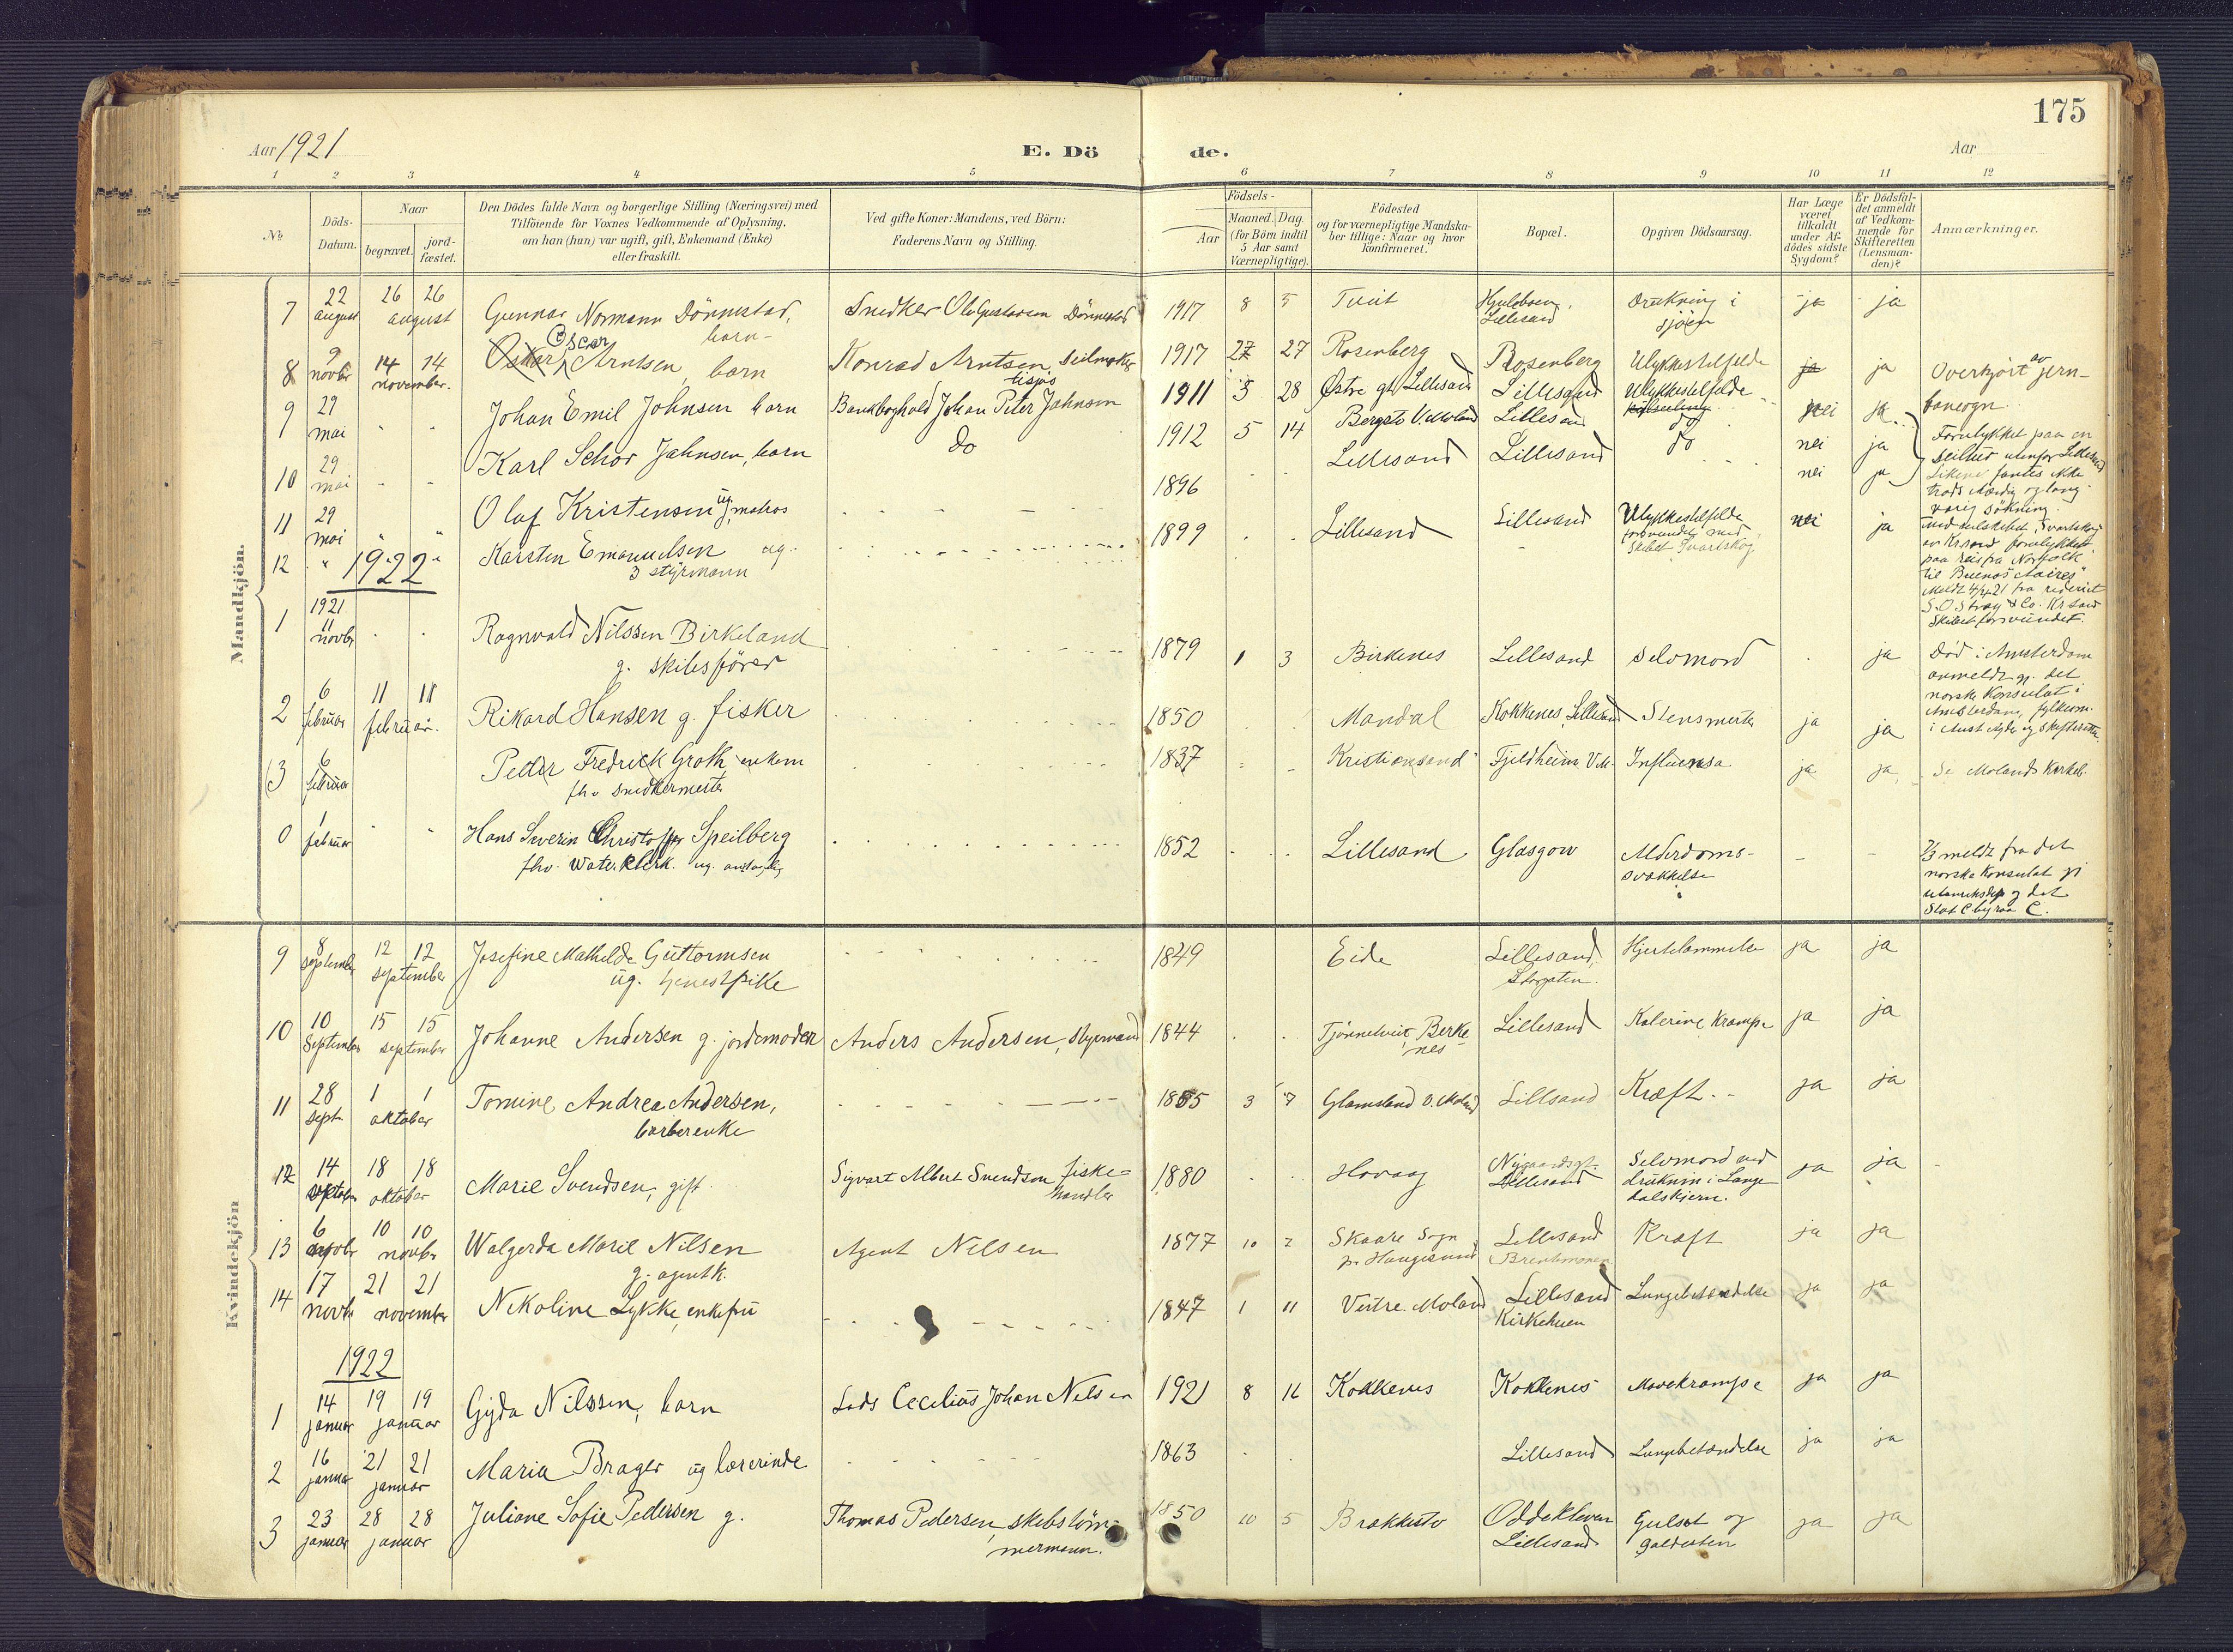 175
Aar 1921
E. Dö
de.
Aar
1 2 3 4 5 6 7 8 9 10 11 12
No
Döds-
Datum.
Naar
begravet.
jord-
fæstet.
Den Dödes fulde Navn og borgerlige Stilling (Næringsvei) med
Tilföiende for Voxnes Vedkommende af Oplysning,
om han (hun) var ugift, gift, Enkemand (Enke)
eller fraskilt.
Ved gifte Koner: Mandens, ved Börn:
Faderens Navn og Stilling.
Födsels-
Aar
Maaned. Dag
(for Börn indtil
5 Aar samt
Værnepligtige).
Födested
og for værnepligtige Mandska-
ber tillige: Naar og hvor
konfirmeret.
Bopæl.
Opgiven Dödsaarsag.
Har Læge
været
tilkaldt
under Af-
dödes sidste
Sygdom?
Er Dödsfal-
det anmeldt
af Vedkom-
mende for
Skifteretten
(Lensman-
den)?
Anmærkninger.
Mandkjön.
7 22 august 26 26 august Gunnar Normann Dönnestad, barn- Snedker Ole Gustavsen Dönnestad 1917 8 5 Tveit Lillesand Drukning i sjöen ja ja
8 9 novbr 14 14 november. Oskar Oscar Arntsen, barn Konrad Arntsen, seilmaker 1917 27 Rosenberg Rosenberg Ulykkestilfelde ja ja Overkjört av jern-
banevogn.
9 29 mai Johan Emil Johnsen barn Bankbokhold Johan Peter Jahnsen 1911 3 28 Østre gt Lillesand Lillesand Ulykkestilfelde nei ja
10 29 mai Karl Schor Jahnsen, barn do 1912 5 14 Bergstö V. Moland Lillesand do nei ja
11 29 mai Olaf Kristensen ug. matros 1896 Lillesand Lillesand do nei ja
Forulykket paa en
seiltur utenfor Lillesand
Likene fantes ikke
trods ihærdig og lang-
varig sökning.
12 Karsten Emanuelsen ug. 3 styrmann 1899 Lillesand Lillesand Ulykkestilfelde forsvundet med Skibet Svartskog nei ja
Med seilskibet Svartskog
av Krsand forulykket
paa reis fra Norfolk
til Buenos Aires
Meldt 4/4 21 fra rederiet
S. O. Stray & Co. Krsand
Skibet forsvundet.
1922
1 1921 11 novbr Ragnvald Nilssen Birkeland g. skibsförer 1879 1 3 Birkenes Lillesand Selvmord ja
Död i Amsterdam
anmeldt gj. det
norske Konsulat i
Amsterdam, fylkesm.
i Aust Agder og Skifteretten.
2 6 februar 11 11 februar. Rikard Hansen g. fisker 1850 Mandal Kokkenes Lillesand Slensmerter ja ja
3 6 februar Peder Fredrick Groth enkem fhv snedkermester 1837 Kristiansand Fjeldheim V.M. Influensa ja ja Se Molands Kirkeb.
0 1 februar Hans Severin Christoffer Speilberg fhv. Waterklerk. ug. 1852 Lillesand Glasgow Alderdoms-
svækkelse
7/3 meldt fra det
norske Konsulat gj
utenriksdep og det
Stat C byraa C.
Kvindekjön
9 8 september 12 12 september Josefine Mathilde Guttormsen ug. tjenestpike 1849 Eide Lillesand, Storgaten. Hjertelammelse ja ja
10 10 September 15 15 september Johanne Andersen g. jordemoder Anders Andersen, styrmand 1844 Tjönnetveit, Berke-
nes Lillesand Kolerine Krampe ja ja
11 28 sept 1 1 oktober Tomine Andrea Andersen, barberenke 1855 3 7 Glamsland V. Moland Lillesand Kræft ja ja
12 14 oktober 18 18 oktober Marie Svendsen, gift Sigvart Albert Svendsen fiske-
handler 1880 Hovaag Nygaardsgt. Lillesand Selvmord ved
drukning i Lange-
dalskjern. ja ja
13 6 novbr 10 10 novbr Walgerda Marie Nilsen g. agentk. Agent Nilsen 1877 10 2 Skaare Sogn
pr Haugesund Lillesand Kræft ja ja
14 17 novbr 21 21 november Nikoline Lykke, enkefru 1847 1 11 Vestre Moland Lillesand Kirkeheien Lungebetændelse ja ja
1922
1 14 januar 19 19 januar Gyda Nilssen, barn Lods Cecilius Johan Nilsen 1921 8 16 Kokkenes Kokkenes Mavekrampe ja ja
2 16 januar 21 21 januar Maria Brager ug lærerinde 1863 Lillesand Lungebetændelse ja ja
3 23 januar 28 28 januar Juliane Sofie Pedersen g. Thomas Pedersen, skibstöm-
mermann. 1850 10 5 Brækkestö Oddekleven Lillesand Gulsot og
galdesten ja ja